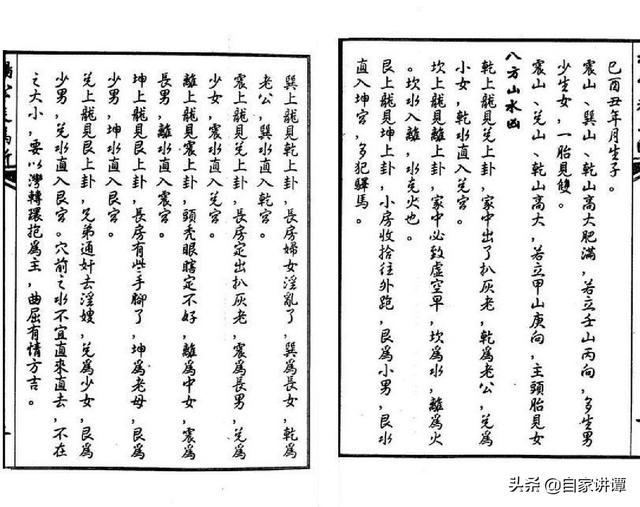 巳酉丑年月生子。
震山、巽山、乾山高大肥滿,若立壬山丙向,多生男
少生女,一胎見雙。
震山、兑山、乾山高大,若立甲山庚向,主頭胎見女
八方山水凶
乾上龍見兑上卦,家中出了扒灰老,乾爲老公,兑爲
小女,乾水直入兑宫。
坎上龍見離上卦,家中必致虚空早,坎爲水,離爲火
。坎水入離,水克火也。
艮上龍見坤上卦,小房收拾往外跑,艮爲小男,艮水
直入坤宫,多犯驛馬。
巽上龍見乾上卦,長房婦女淫亂了,巽爲長女,乾爲
老公,巽水直入乾宫。
震上龍見兑上卦,長房定出扒灰老,震爲長男,兑爲
少女,震水直入兑宫。
離上龍見震上卦,頭秃眼瞎定不好,離爲中女,震爲
長男,離水直入震宫。
坤上龍見艮上卦,長房有些手腳了,坤爲老母,艮爲
少男,坤水直入艮宫。
兑上龍見艮上卦,兄弟通奸去淫嫂,兑爲少女,艮爲
少男,兑水直入艮宫。穴前之水不宜直來直去,不在
之大小,要以灣轉環抱爲主,曲屈有情方吉。
头条 @自家讲谭